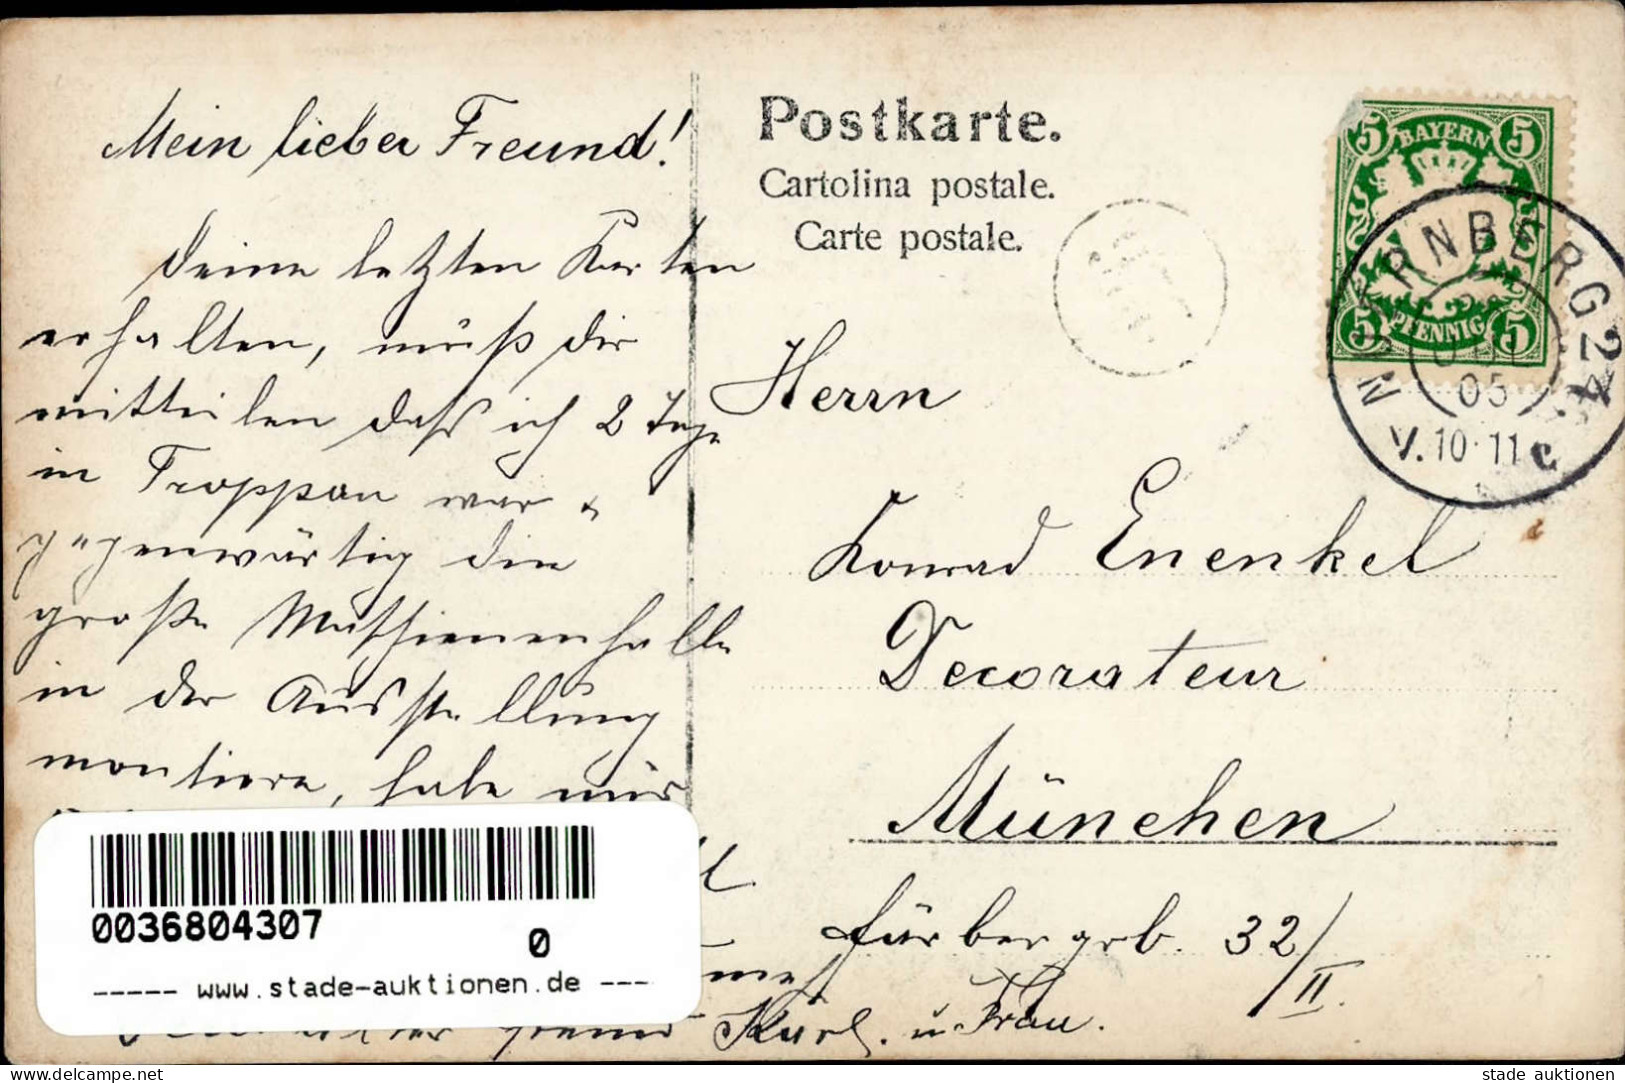 Mein lieber Freund!
Deine letzten Karten
erhalten, muß dir
mitteilen daß ich 2 Tage
in Troppau war &
gegenwärtig die
große Maschienenhalle
in der Ausstellung
montiere, habe mir
Freund Karl. u. Frau.
Postkarte.
Cartolina postale.
Carte postale.
Herrn
Konrad Enenkel
Decorateur
München
Färbergrb. 32/II.
5 BAYERN 5
5 PFENNIG 5
NÜRNBERG 2
05
V. 10-11 c
0036804307
0
----- www.stade-auktionen.de ---
stade auktionen